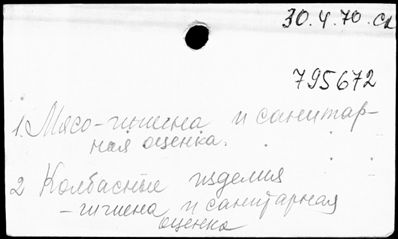 30.4.70. сл
795672
1. Мясо-гигиена и санитар-
ная оценка.
2 Колбасные изделия
- гигиена и санитарная
оценка